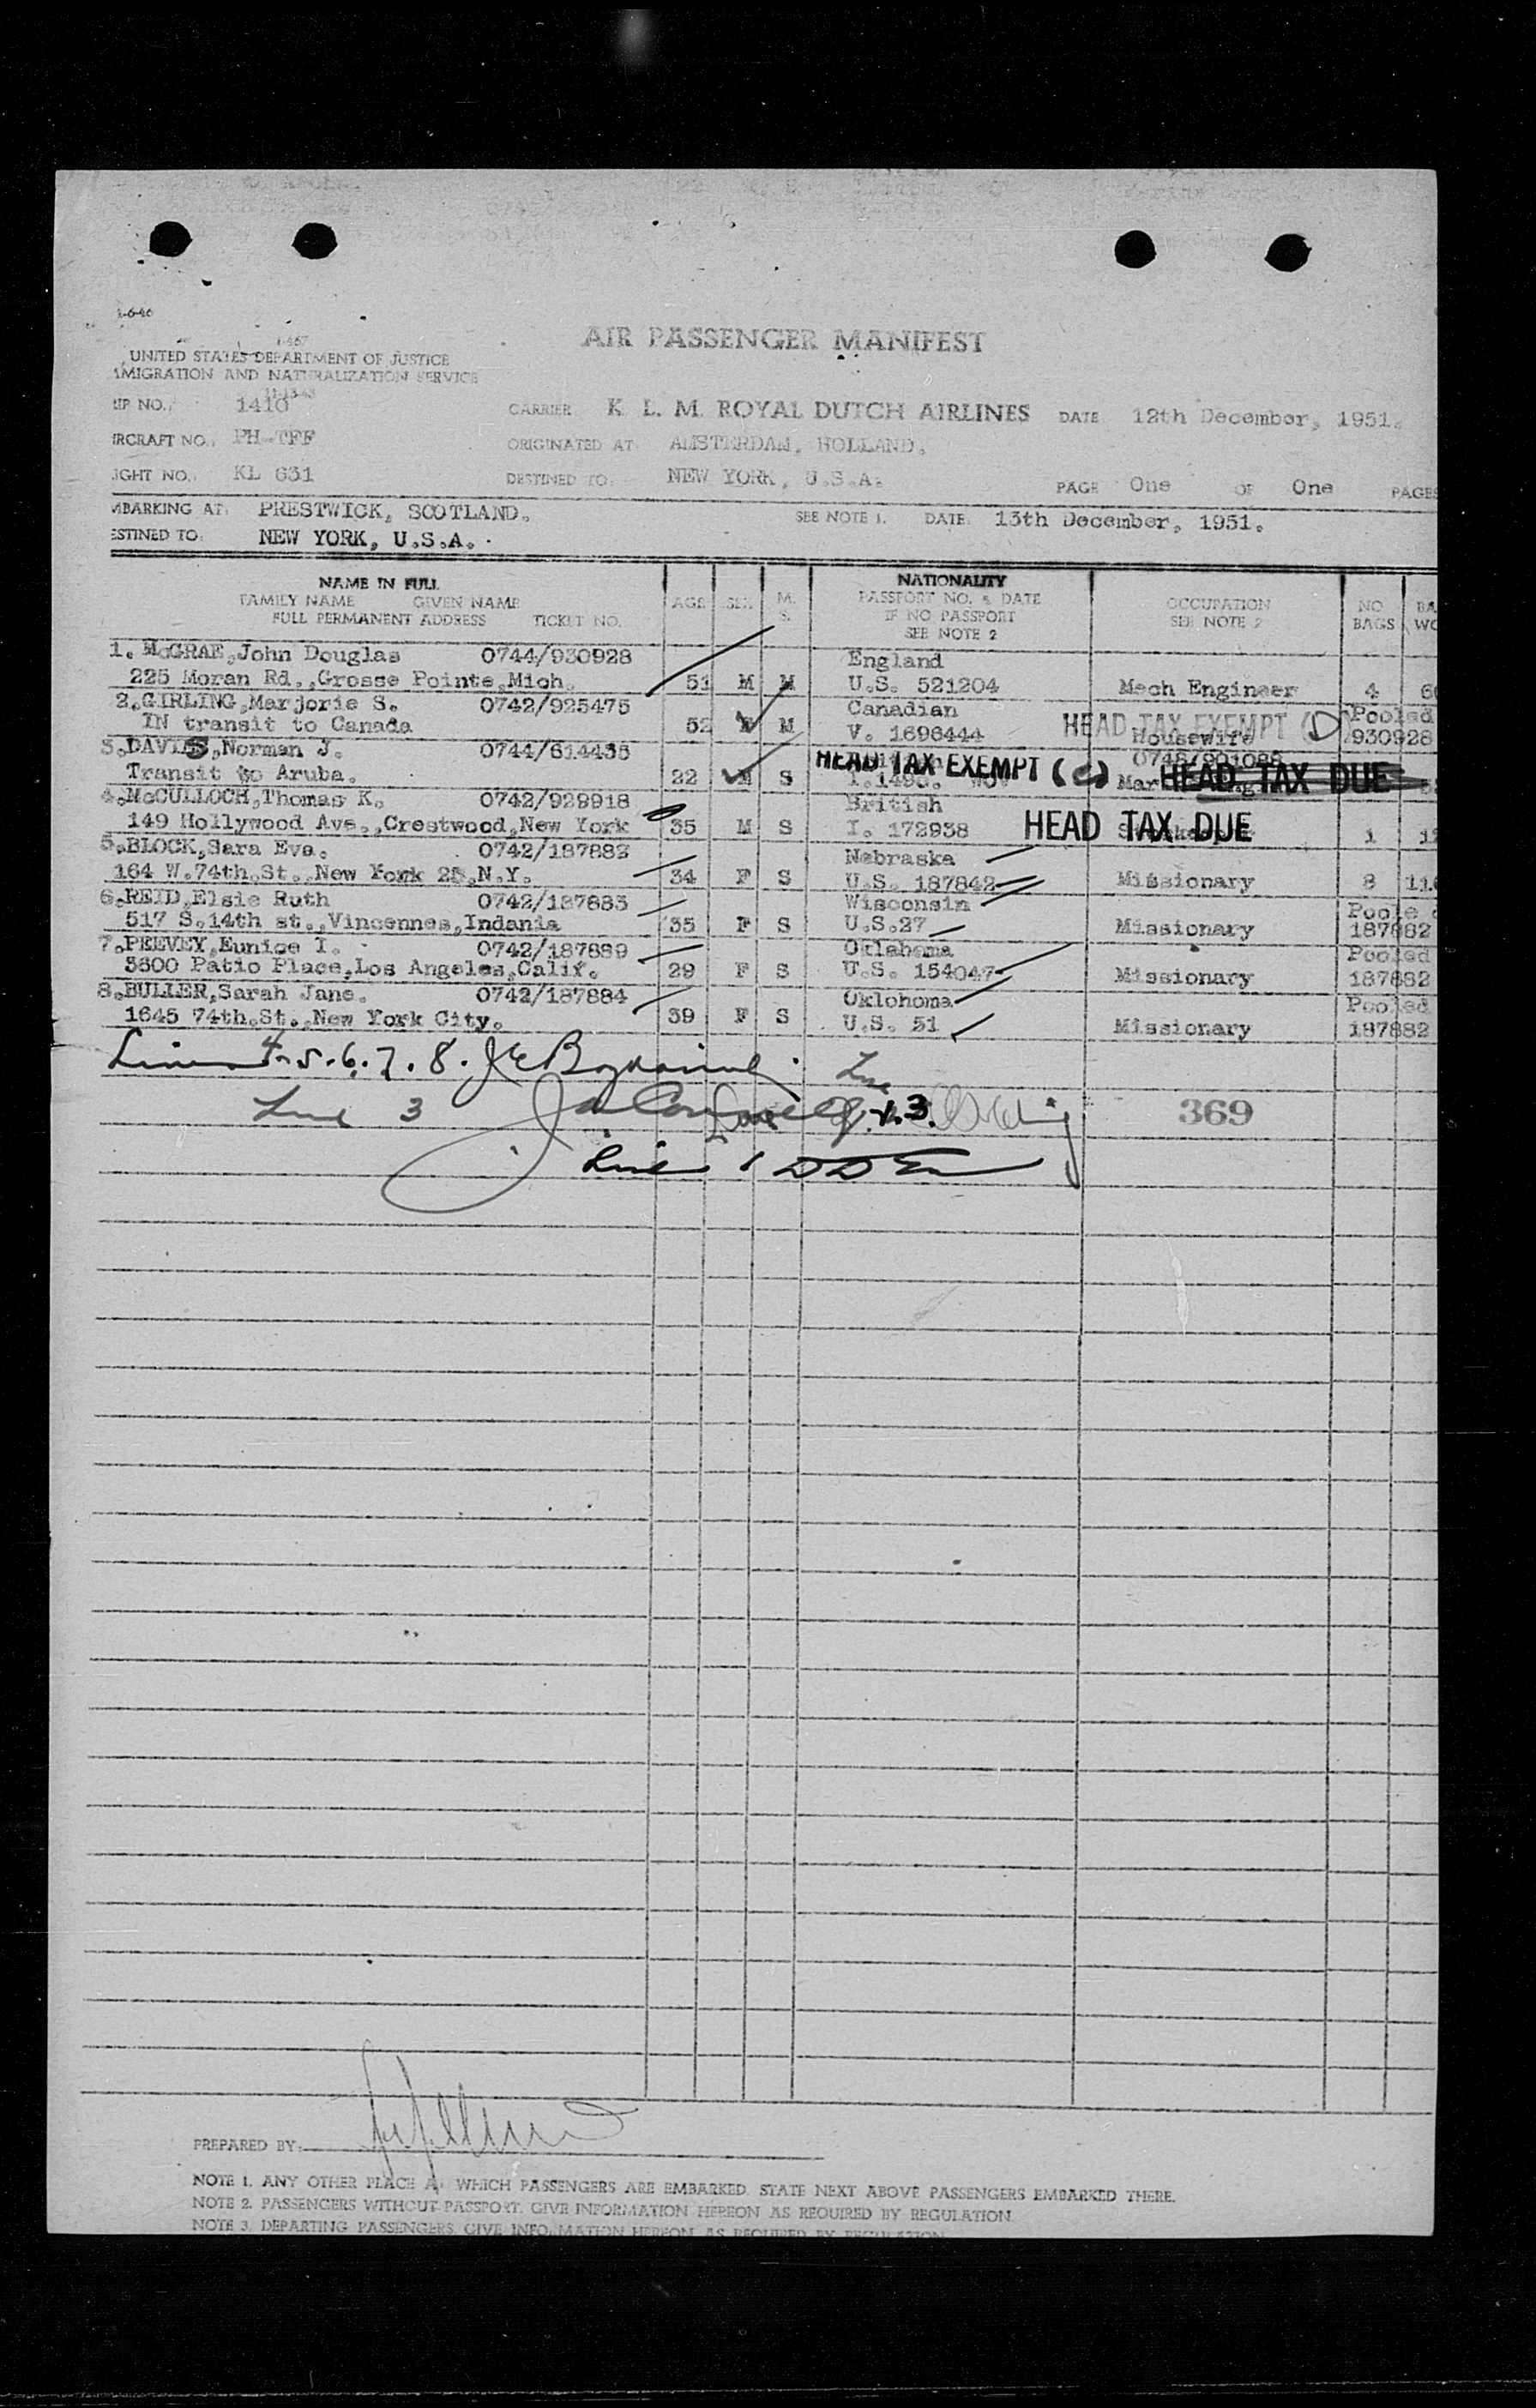 1-6-46
AIR PASSENGER MANIFEST
UNITED STATES DEPARTMENT OF JUSTICE
IMIGRATION AND NATURALIZATION SERVICE
IP NO. 1410
CARRIER K. L. M. ROYAL DUTCH AIRLINES DATE 12th December, 1951.
IRCRAFT NO. PH-TFF ORIGINATED AT: AMSTERDAM, HOLLAND.
IGHT NO. KL 631 DESTINED TO: NEW YORK, U.S.A. PAGE One OF One PAGES
MBARKING AT: PRESTWICK, SCOTLAND. SEE NOTE 1. DATE: 13th December, 1951.
ESTINED TO: NEW YORK, U.S.A.
NAME IN FULL
FAMILY NAME GIVEN NAME
FULL PERMANENT ADDRESS TICKET NO.
AGE SEX M. S.
NATIONALITY
PASSPORT NO. & DATE
IF NO PASSPORT
SEE NOTE 2
OCCUPATION
SEE NOTE 2
NO BAGS
BA WO
1. McGRAE, John Douglas 0744/930928 England
225 Moran Rd., Grosse Pointe, Mich. 51 M M U.S. 521204 Mech Engineer 4
2. GIRLING, Marjorie S. 0742/925475 Canadian HEAD TAX EXEMPT (D) Pooled
IN transit to Canada 52 F M V. 1696444 Housewife 930928
3. DAVIS, Norman J. 0744/614435 HEAD TAX EXEMPT (C)
Transit to Aruba. 22 M S HEAD TAX DUE
4. McCULLOCH, Thomas K. 0742/929918 British
149 Hollywood Ave., Crestwood, New York 35 M S I. 172938 HEAD TAX DUE 1
5. BLOCK, Sara Eva. 0742/187882 Nebraska
164 W. 74th. St., New York 23, N.Y. 34 F S U.S. 187842 Missionary 8
6. REID, Elsie Ruth 0742/187883 Wisconsin Poole
517 S. 14th st., Vincennes, Indania 35 F S U.S. 27 Missionary 187882
7. PEEVEY, Eunice I. 0742/187889 Oklahoma Pooled
3300 Patio Place, Los Angeles, Calif. 29 F S U.S. 154047 Missionary 187882
8. BULLER, Sarah Jane. 0742/187884 Oklohoma Pooled
1645 74th. St., New York City. 39 F S U.S. 51 Missionary 187882
4-5.6.7.8.
Line 3
369
Line 1
PREPARED BY:
NOTE 1. ANY OTHER PLACE AT WHICH PASSENGERS ARE EMBARKED, STATE NEXT ABOVE PASSENGERS EMBARKED THERE.
NOTE 2. PASSENGERS WITHOUT PASSPORT, GIVE INFORMATION HEREON AS REQUIRED BY REGULATION.
NOTE 3. DEPARTING PASSENGERS, GIVE INFORMATION HEREON AS REQUIRED BY REGULATION